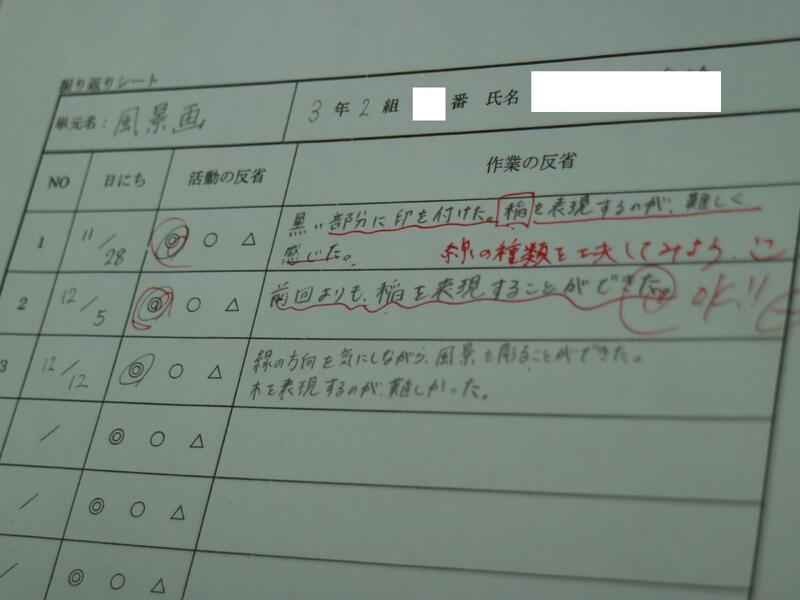 振り返りシート
単元名： 風景画 3 年 2 組 番 氏名
NO 日にち 活動の反省 作業の反省
1 11/28 ◎ ○ △ 黒い部分に印を付けた。稲を表現するのが、難しく
感じた。 線の種類を工夫してみよう
2 12/5 ◎ ○ △ 前回よりも、稲を表現することができた。 OK!!
3 12/12 ◎ ○ △ 線の方向を気にしながら、風景を彫ることができた。
木を表現するのが、難しかった。
/ ◎ ○ △
/ ◎ ○ △
/ ◎ ○ △